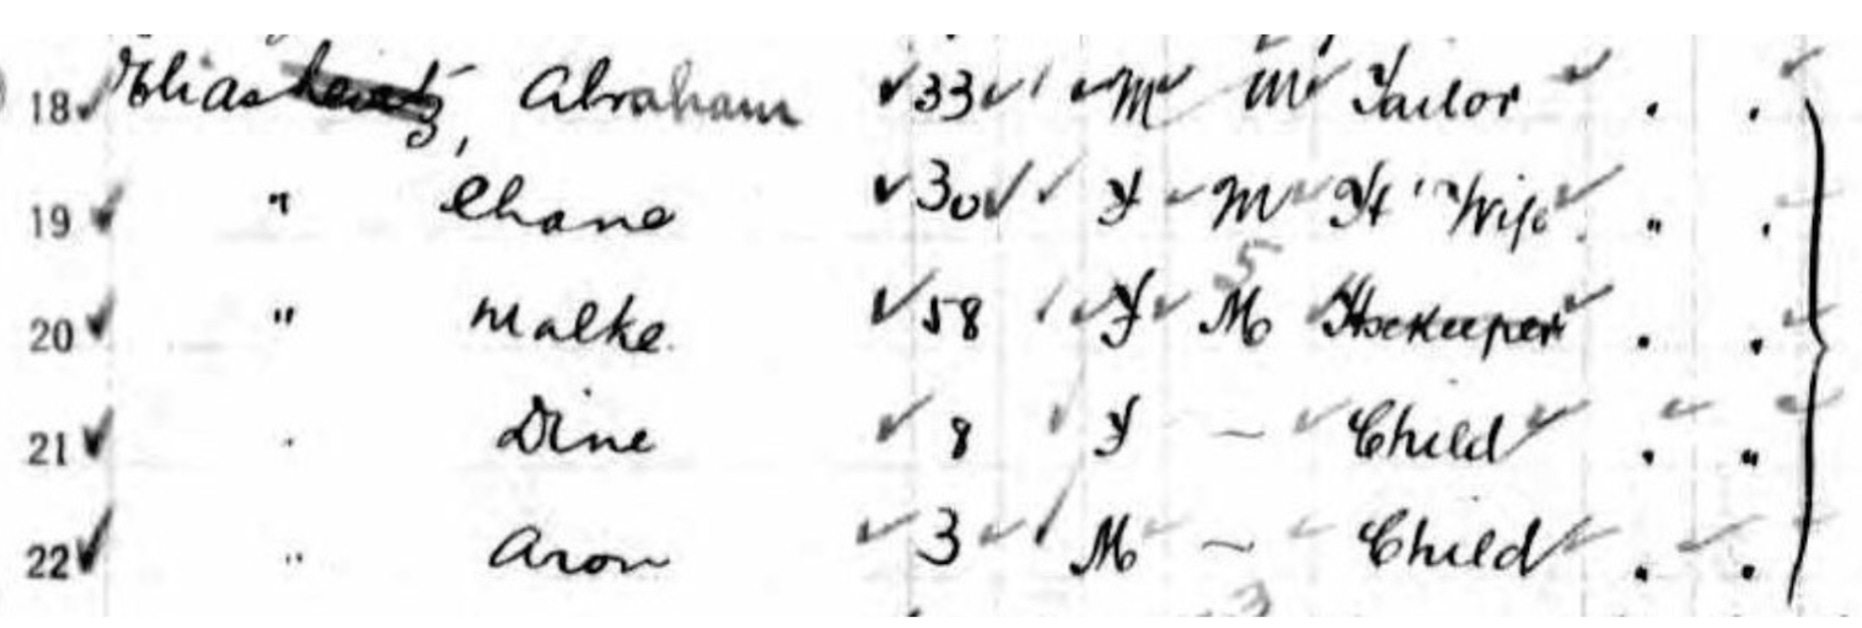 18 Elias Abraham 33 M M Tailor " "
19 " Chane 30 F M H'Wife " "
20 " Malke. 58 F M Hsekeeper " "
21 " Dine 8 F – Child " "
22 " Aron 3 M – Child " "